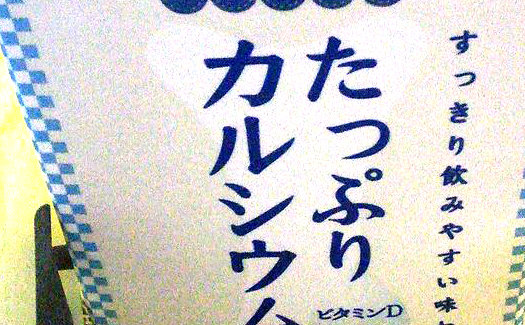 すっきり飲みやすい味
たっぷり
カルシウム
ビタミンD